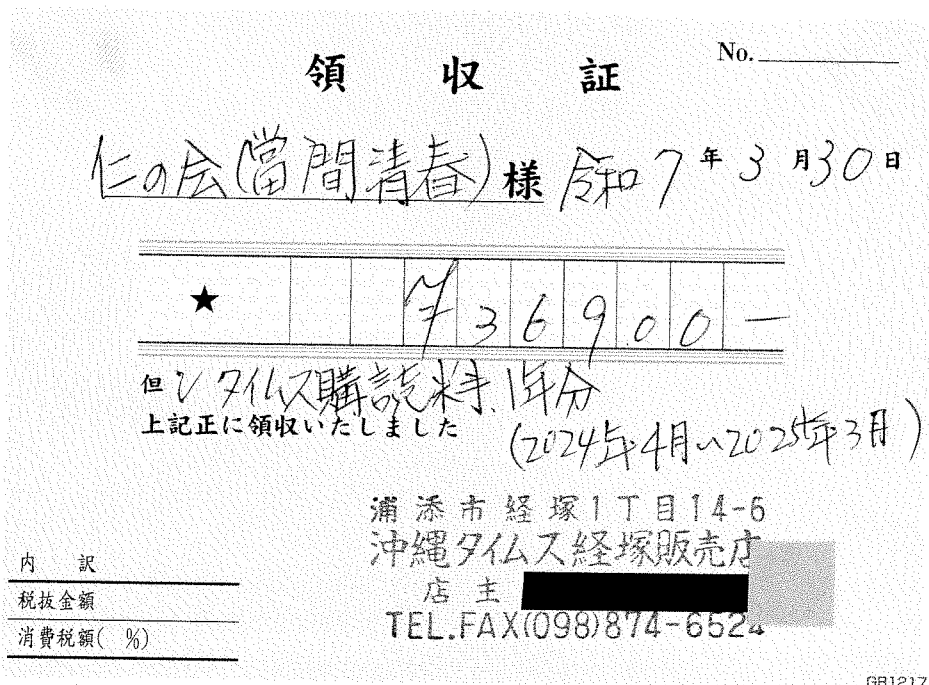 領収証
No.
仁の会(當間清春)様 令和7年3月30日
★ ¥36900-
但し タイムス購読料.1年分
上記正に領収いたしました
(2024年4月〜2025年3月)
浦添市経塚1丁目14-6
沖縄タイムス経塚販売店
店主
TEL.FAX(098)874-6524
内訳
税抜金額
消費税額( %)
GB1217